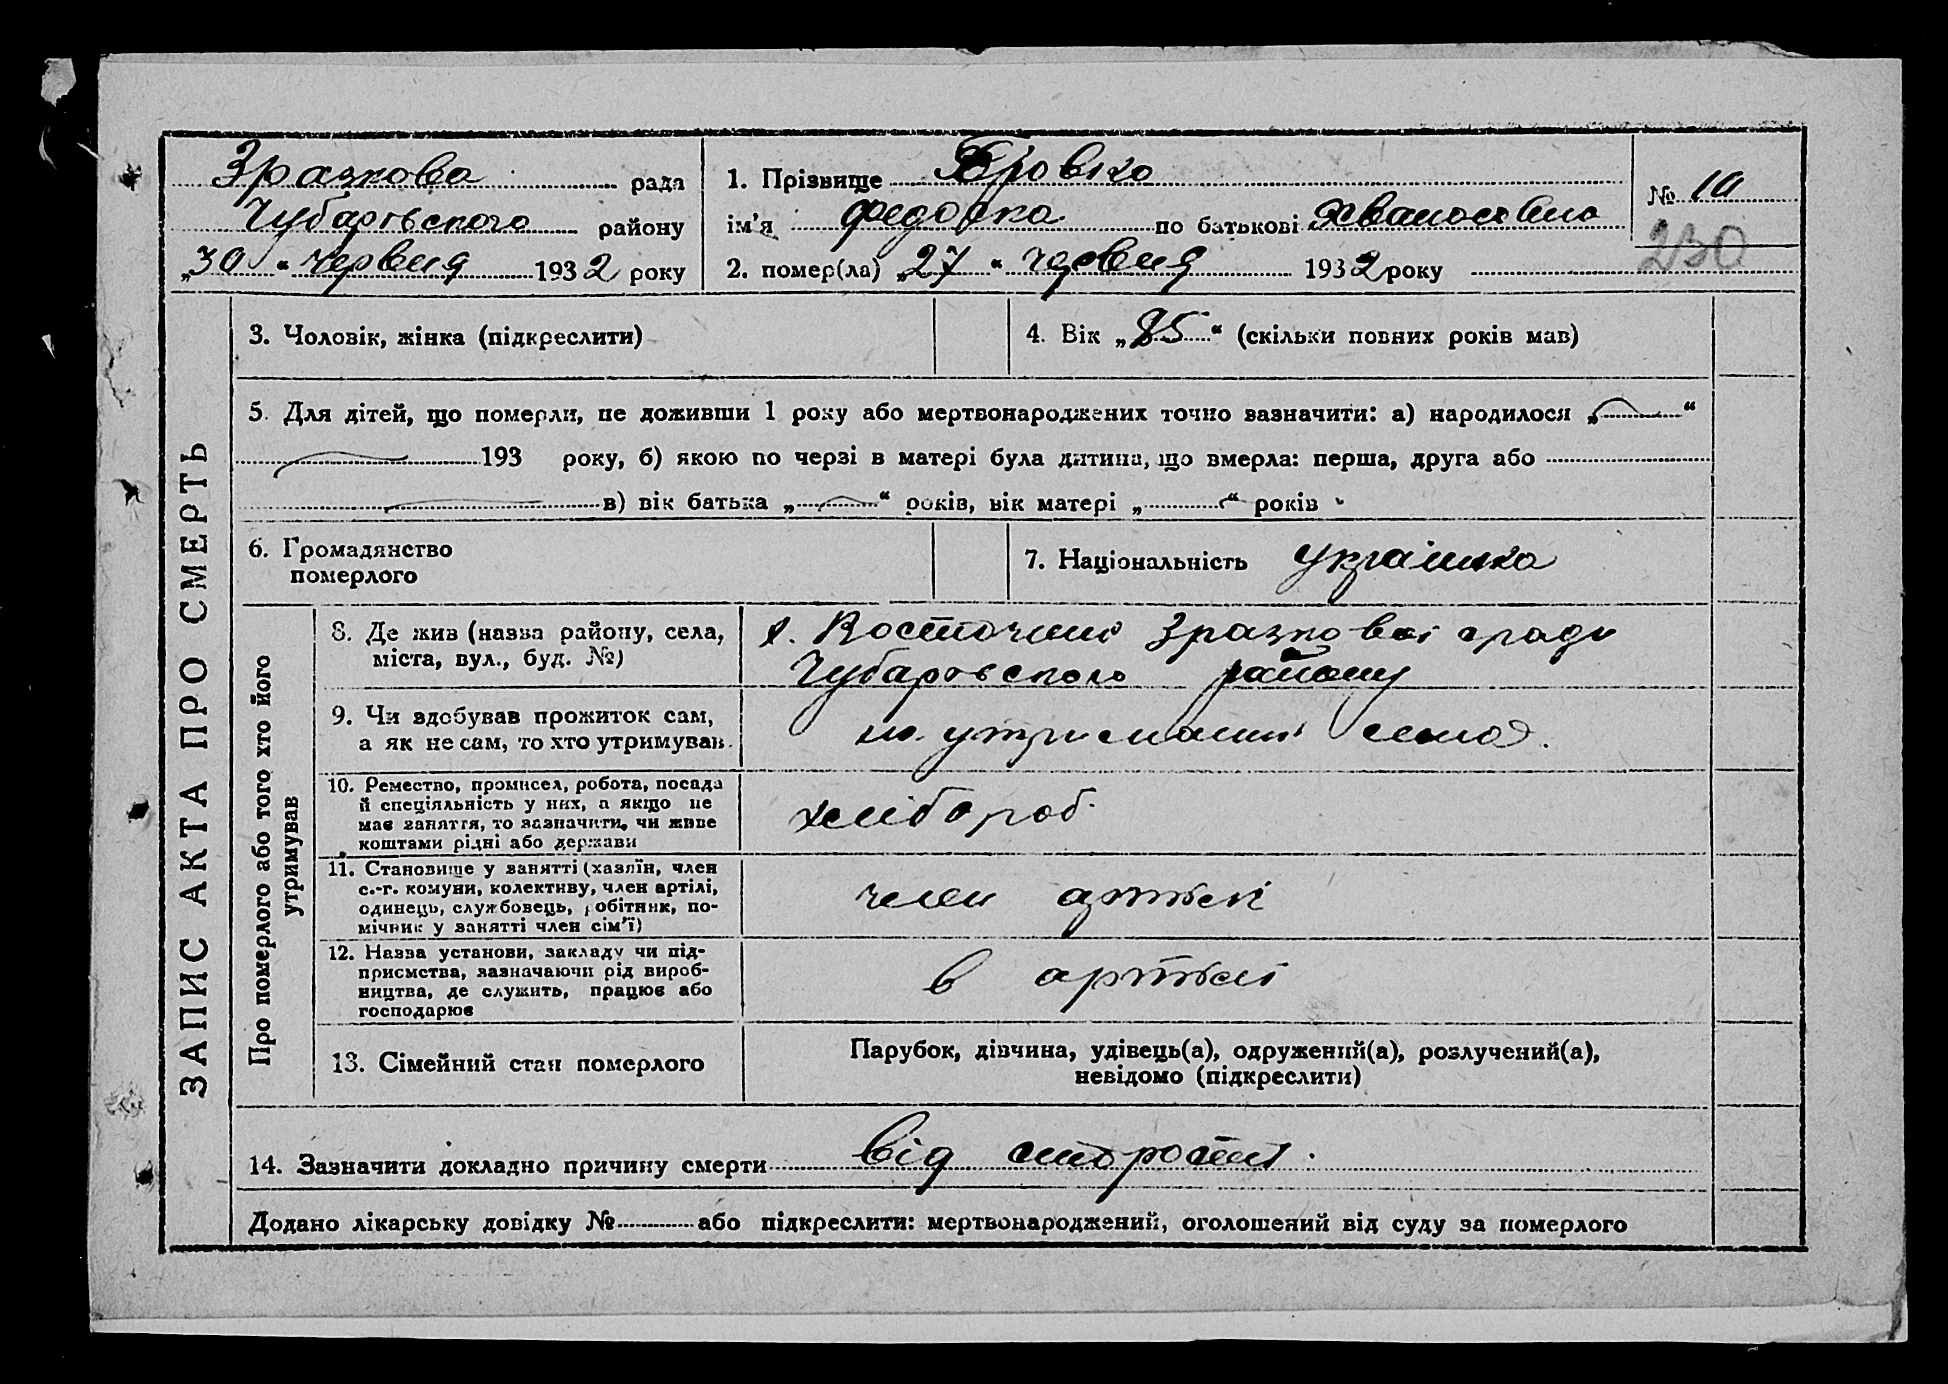 Зразкова рада
Чубарівського району
„30“ червня 1932 року
1. Прізвище Яровко
ім'я Федорка по батькові
2. помер(ла) „27“ червня 1932 року
№ 10
230
ЗАПИС АКТА ПРО СМЕРТЬ
3. Чоловік, жінка (підкреслити)
4. Вік „85“ (скільки повних років мав)
5. Для дітей, що померли, не доживши 1 року або мертвонароджених точно зазначити: а) народилося „ “
193 року, б) якою по черзі в матері була дитина, що вмерла: перша, друга або
в) вік батька „ “ років, вік матері „ “ років
6. Громадянство
померлого
7. Національність Українка
Про померлого або того хто його
утримував
8. Де жив (назва району, села,
міста, вул., буд. №)
с. Восточине Зразкової сради
Чубарівського району
9. Чи здобував прожиток сам,
а як не сам, то хто утримував.
на утриманні сина.
10. Ремество, промисел, робота, посада
й спеціяльність у них, а якщо не
мав заняття, то зазначити, чи живе
коштами рідні або держави
хлібороб
11. Становище у занятті (хазяїн, член
с.-г. комуни, колективу, член артілі,
одинець, службовець, робітник, по-
мічник у занятті член сім'ї)
член артілі
12. Назва установи, закладу чи під-
приємства, зазначаючи рід вироб-
ництва, де служить, працює або
господарює
в артілі
13. Сімейний стан померлого
Парубок, дівчина, удівець(а), одружений(а), розлучений(а),
невідомо (підкреслити)
14. Зазначити докладно причину смерти від старости.
Додано лікарську довідку № або підкреслити: мертвонароджений, оголошений від суду за померлого